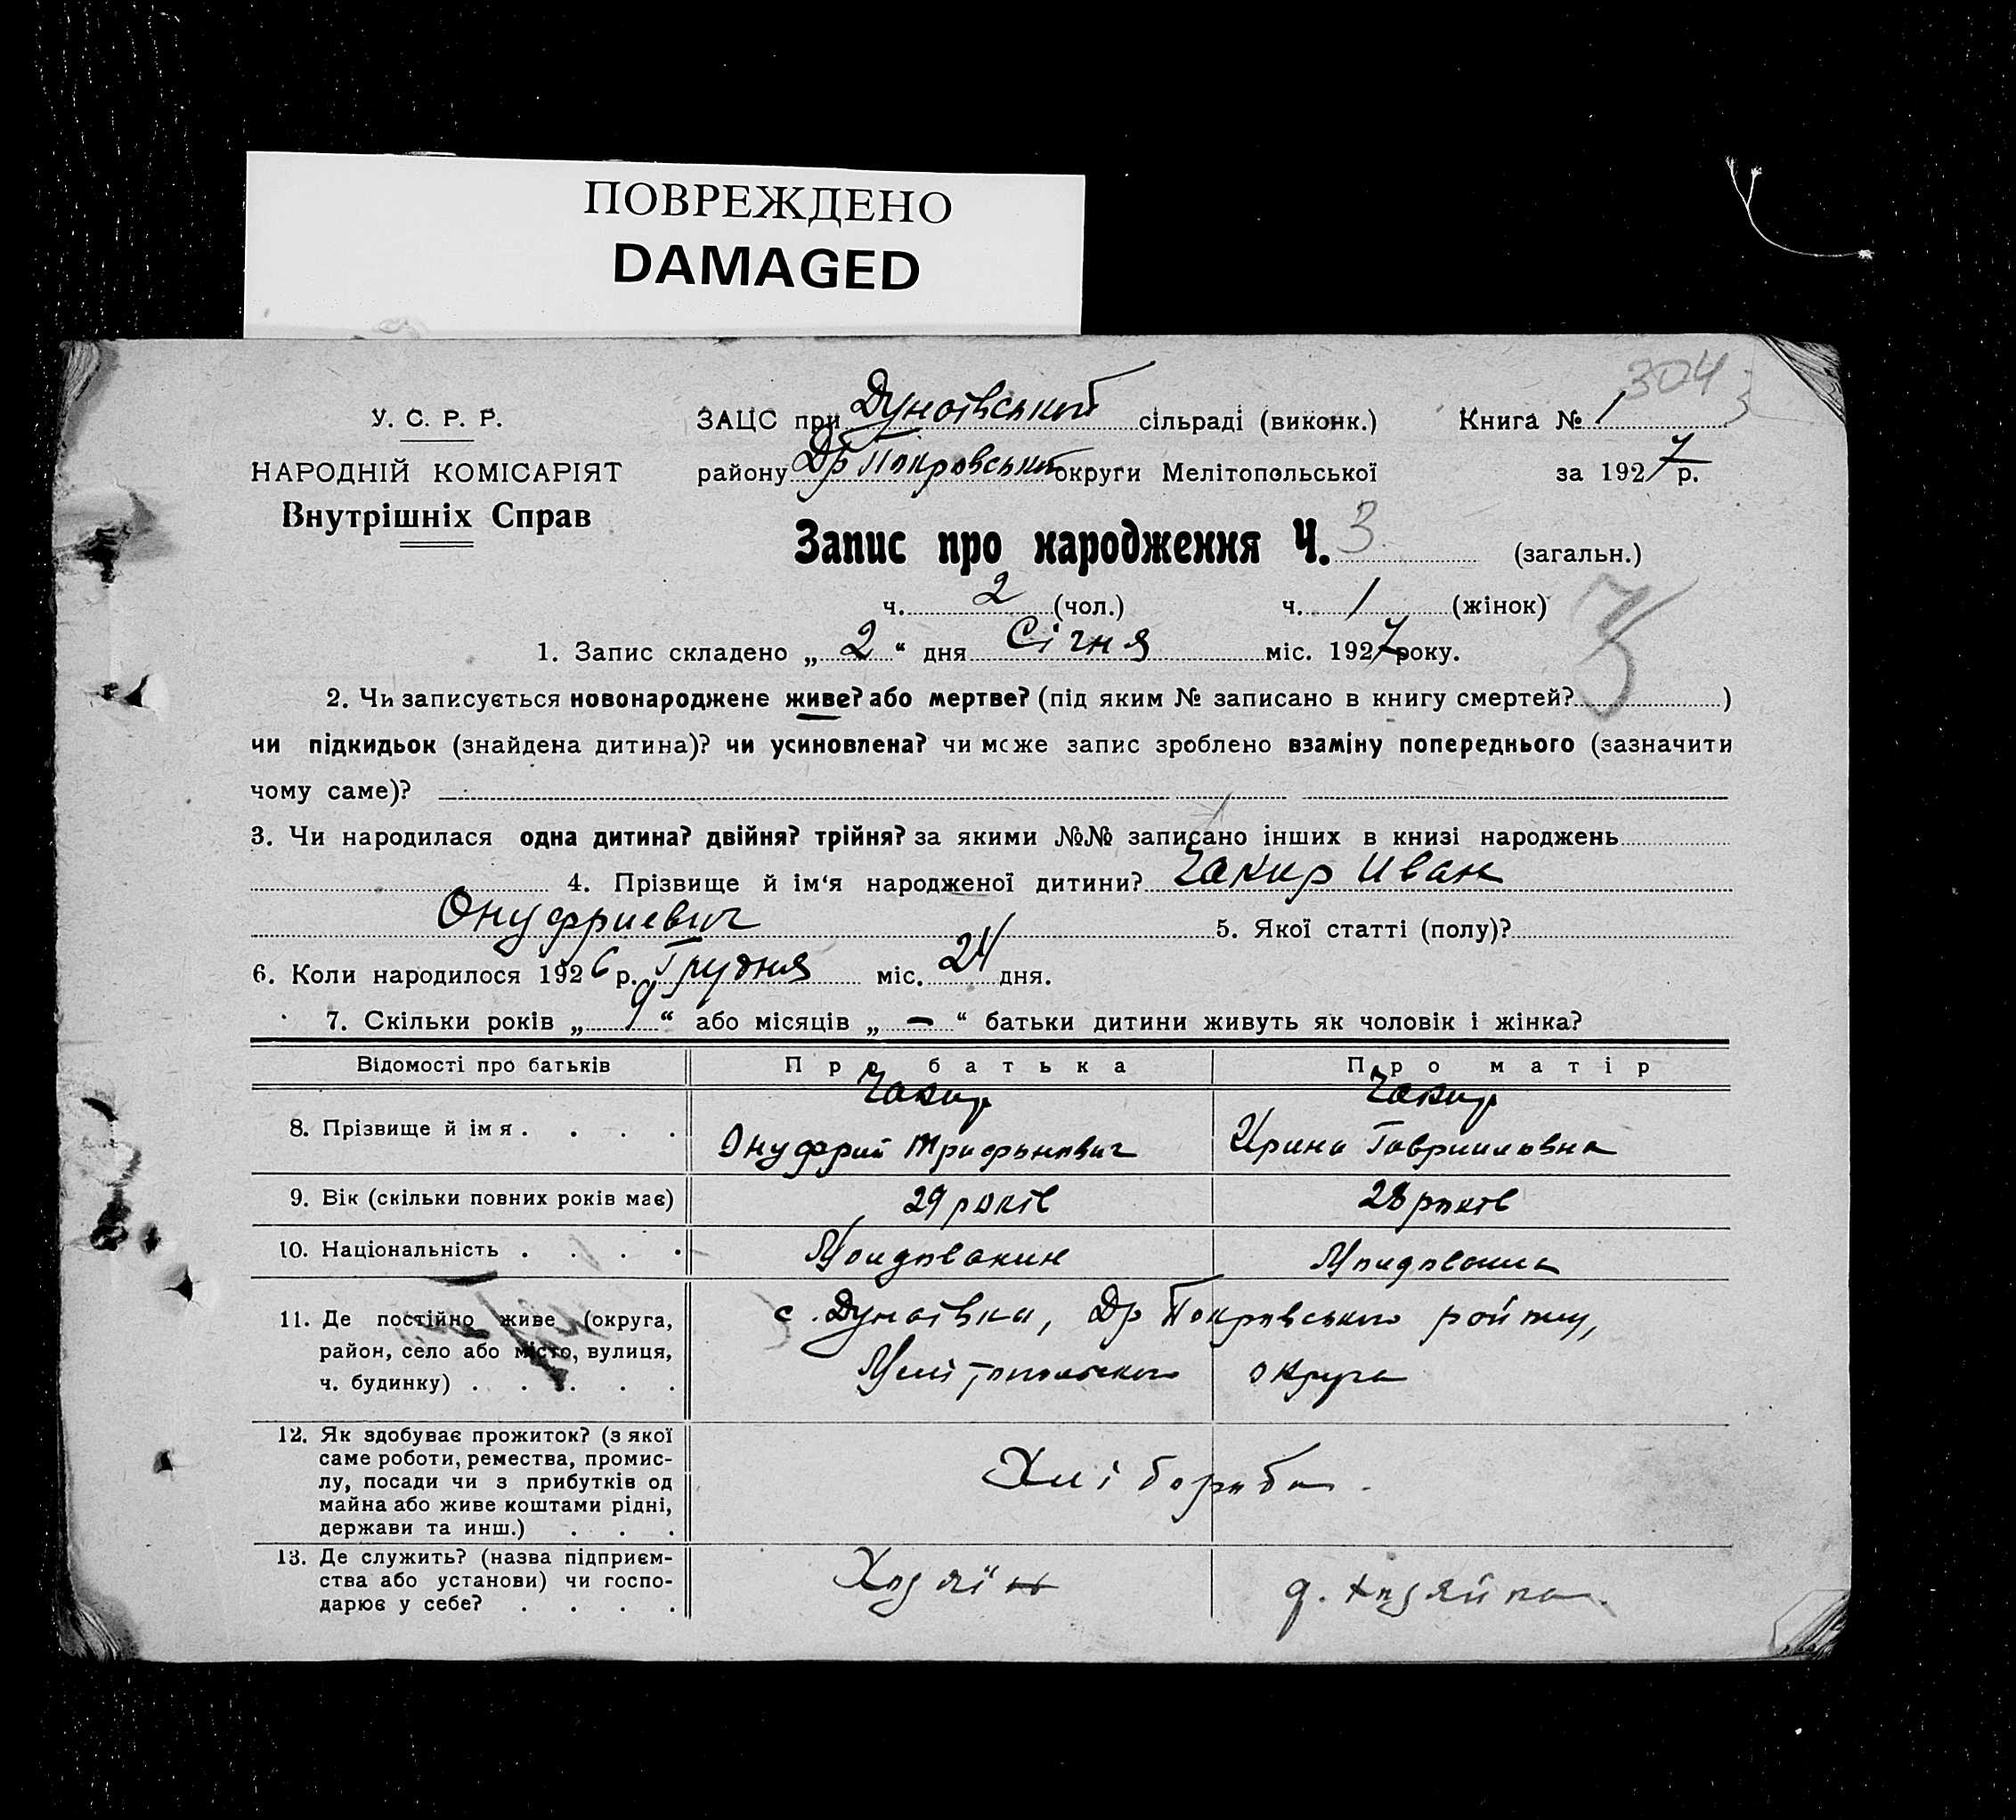 ПОВРЕЖДЕНО
DAMAGED
304
У. С. Р. Р.
НАРОДНІЙ КОМІСАРІЯТ
Внутрішніх Справ
ЗАЦС при Дунаївський сільраді (виконк.) Книга № 1
району Др Покровський округи Мелітопольської за 1927 р.
Запис про народження Ч. 3 (загальн.)
ч. 2 (чол.) ч. 1 (жінок)
3
1. Запис складено „ 2 “ дня Січня міс. 1927 року.
2. Чи записується новонароджене живе? або мертве? (під яким № записано в книгу смертей? )
чи підкидьок (знайдена дитина)? чи усиновлена? чи може запис зроблено взаміну попереднього (зазначити
чому саме)?
3. Чи народилася одна дитина? двійня? трійня? за якими №№ записано інших в книзі народжень
4. Прізвище й ім‘я народженої дитини? Чакир Иван
Онуфриевич 5. Якої статті (полу)?
6. Коли народилося 1926 р. Грудня міс. 24 дня.
7. Скільки років „ 9 “ або місяців „ — “ батьки дитини живуть як чоловік і жінка?
Відомості про батьків Про батька Про матір
8. Прізвище й імя . . . . Чакир Чакир
Онуфрий Трифынович Ирина Гаврииловна
9. Вік (скільки повних років має) 29 років 28 років
10. Національність . . . . Молдованин Молдованка
11. Де постійно живе (округа, с. Дунаївка, Др Покровського району,
район, село або місто, вулиця,
ч. будинку) . . . . . Мелітопольского округа
12. Як здобуває прожиток? (з якої
саме роботи, ремества, промис-
лу, посади чи з прибутків од Хліборобы.
майна або живе коштами рідні,
держави та инш.) . . .
13. Де служить? (назва підприєм- Хозяїн д. хозяйка.
ства або установи) чи госпо-
дарює у себе? . . . .